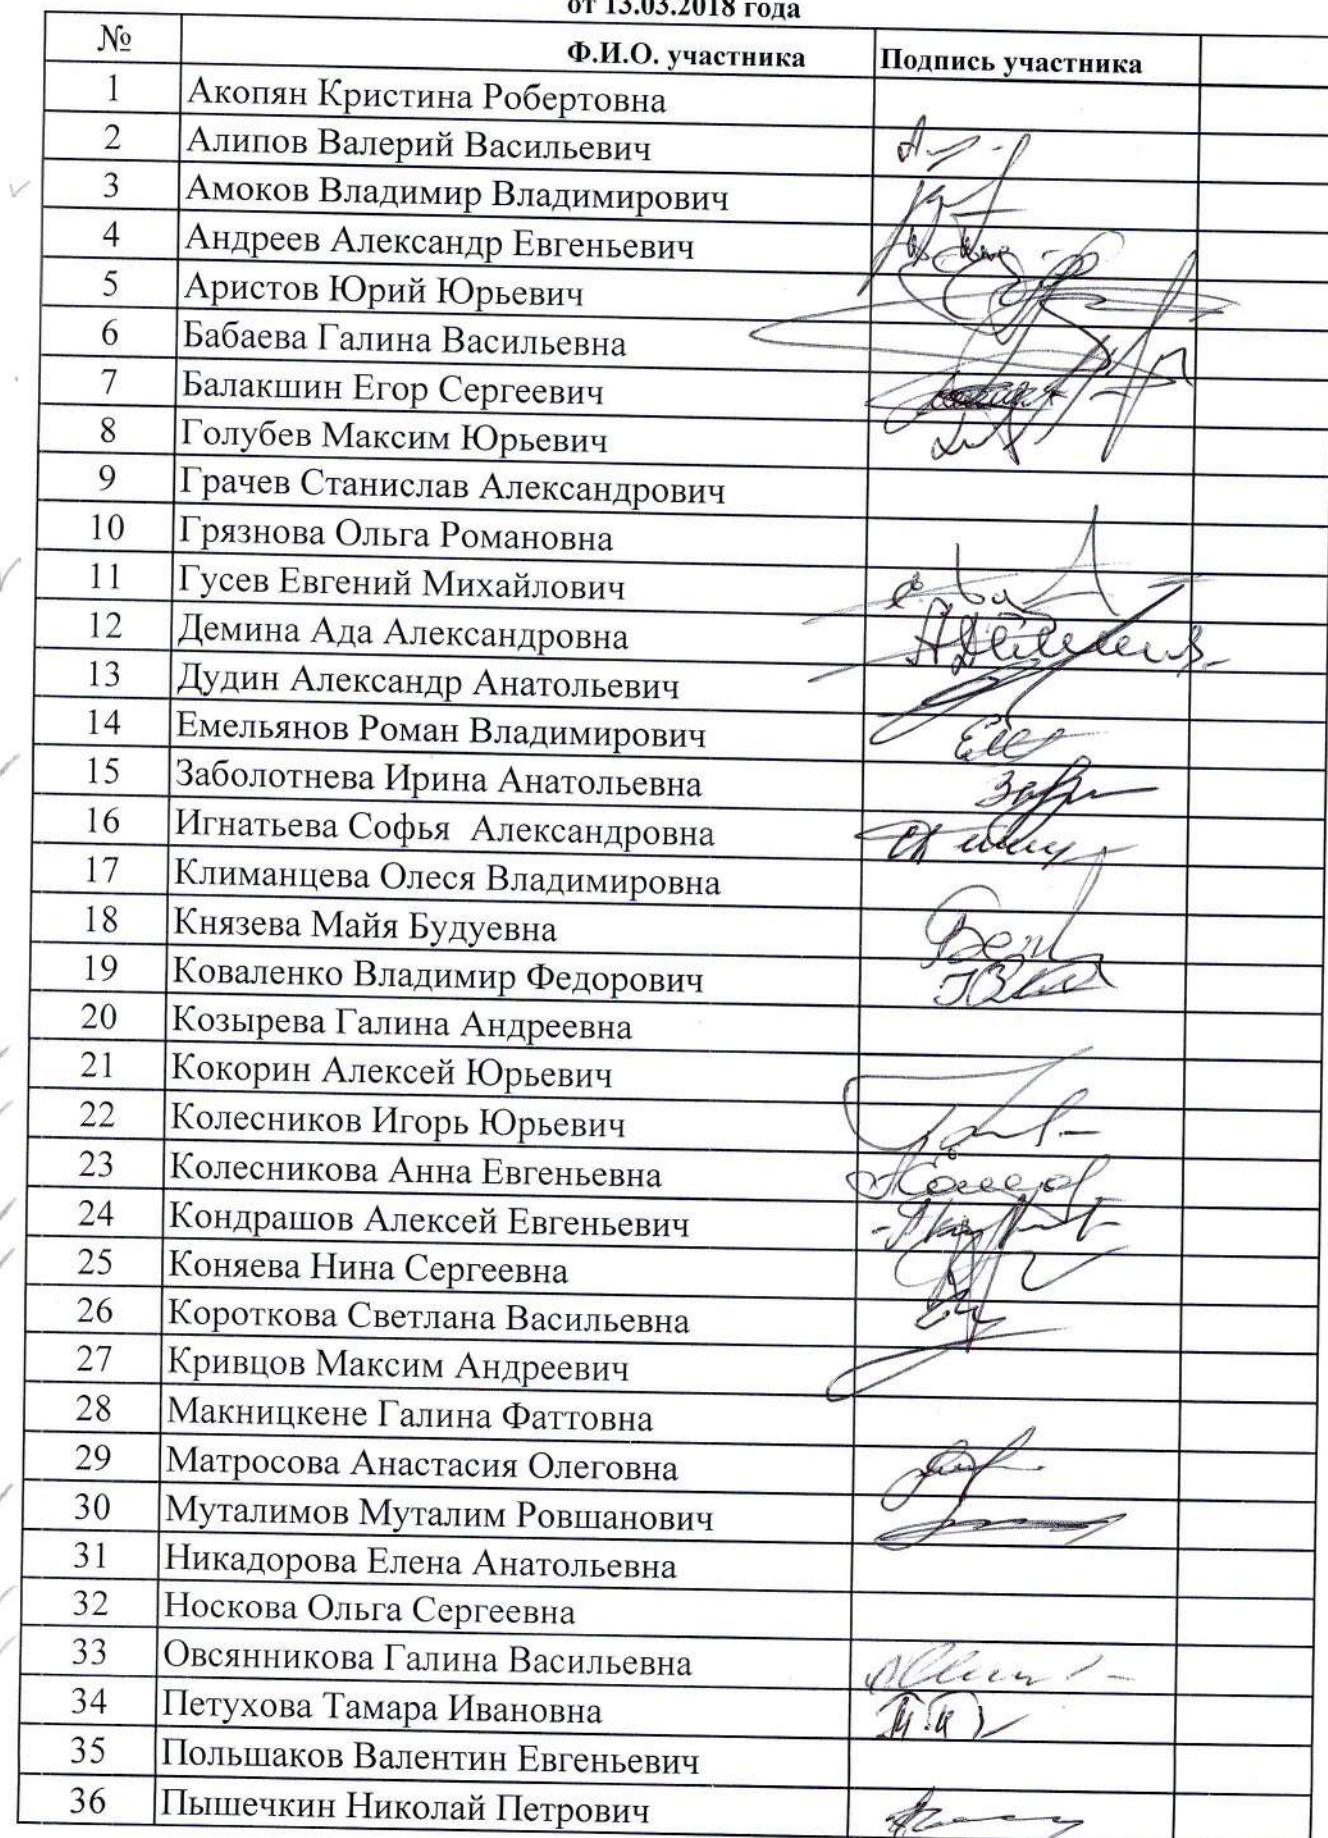 от 13.03.2018 года
№ Ф.И.О. участника Подпись участника
1 Акопян Кристина Робертовна
2 Алипов Валерий Васильевич
3 Амоков Владимир Владимирович
4 Андреев Александр Евгеньевич
5 Аристов Юрий Юрьевич
6 Бабаева Галина Васильевна
7 Балакшин Егор Сергеевич
8 Голубев Максим Юрьевич
9 Грачев Станислав Александрович
10 Грязнова Ольга Романовна
11 Гусев Евгений Михайлович
12 Демина Ада Александровна
13 Дудин Александр Анатольевич
14 Емельянов Роман Владимирович
15 Заболотнева Ирина Анатольевна
16 Игнатьева Софья Александровна
17 Климанцева Олеся Владимировна
18 Князева Майя Будуевна
19 Коваленко Владимир Федорович
20 Козырева Галина Андреевна
21 Кокорин Алексей Юрьевич
22 Колесников Игорь Юрьевич
23 Колесникова Анна Евгеньевна
24 Кондрашов Алексей Евгеньевич
25 Коняева Нина Сергеевна
26 Короткова Светлана Васильевна
27 Кривцов Максим Андреевич
28 Макницкене Галина Фаттовна
29 Матросова Анастасия Олеговна
30 Муталимов Муталим Ровшанович
31 Никадорова Елена Анатольевна
32 Носкова Ольга Сергеевна
33 Овсянникова Галина Васильевна
34 Петухова Тамара Ивановна
35 Польшаков Валентин Евгеньевич
36 Пышечкин Николай Петрович